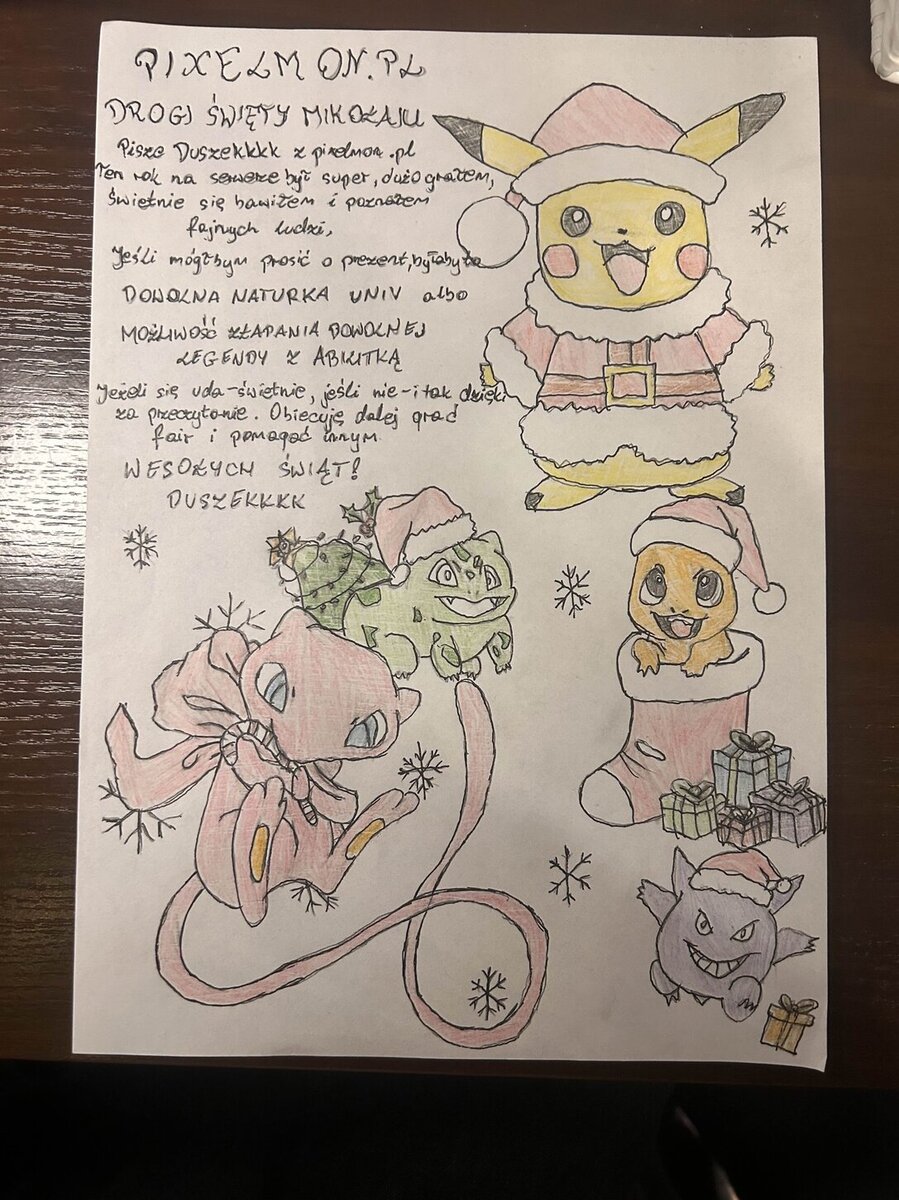 PIXELMON.PL
DROGI ŚWIĘTY MIKOŁAJU
Pisze Duszekkkk z pixelmon.pl
Ten rok na serwerze był super, dużo grałem,
świetnie się bawiłem i poznałem
fajnych ludzi,
Jeśli mógłbym prosić o prezent, byłaby to
DOWOLNA NATURKA UNIV albo
MOŻLIWOŚĆ ZŁAPANIA DOWOLNEJ
LEGENDY Z ABILITKĄ
Jeżeli się uda-świetnie, jeśli nie-i tak dzięki
za przeczytanie. Obiecuję dalej grać
fair i pomagać innym
WESOŁYCH ŚWIĄT!
DUSZEKKKK